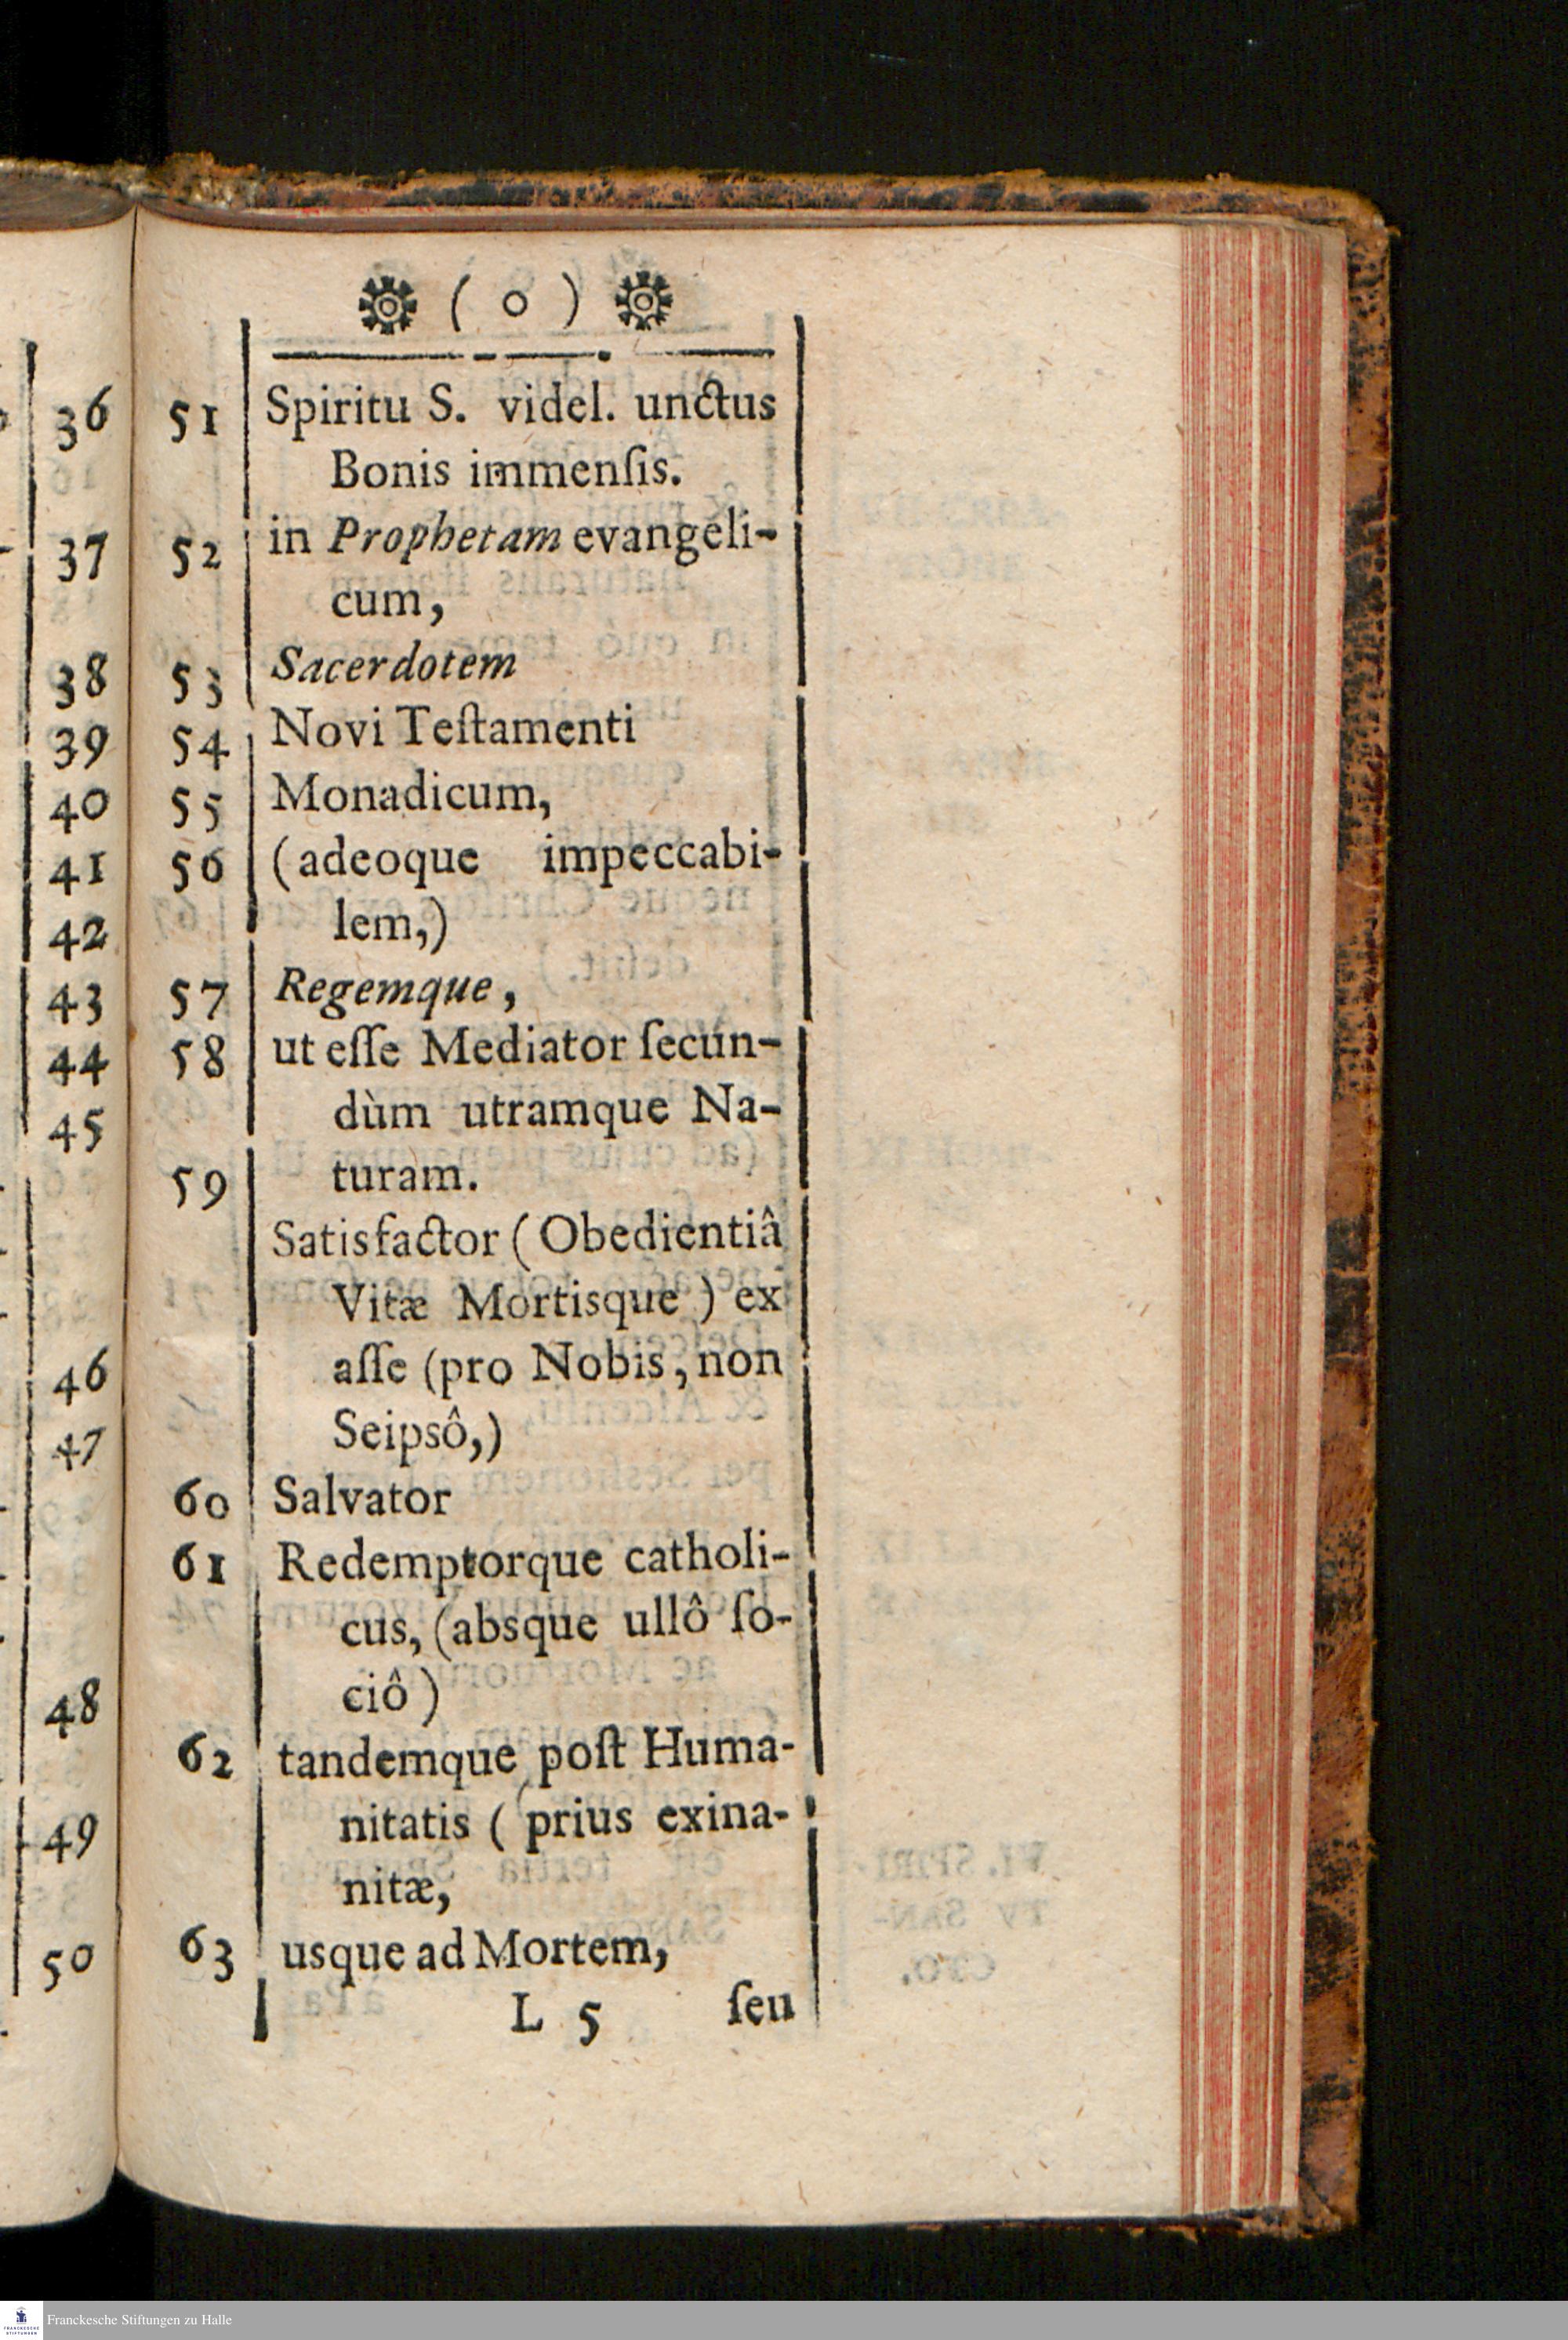 36
37
38
39
40
41
42
43
44
45
46
47
48
49
50
( o )
51 Spiritu S. videl. unctus
Bonis immenſis.
52 in Prophetam evangeli-
cum,
53 Sacerdotem
54 Novi Teſtamenti
55 Monadicum,
56 (adeoque impeccabi-
lem,)
57 Regemque,
58 ut eſſe Mediator ſecun-
dùm utramque Na-
59 turam.
Satisfactor (Obedientiâ
Vitæ Mortisque) ex
aſſe (pro Nobis, non
Seipsô,)
60 Salvator
61 Redemptorque catholi-
cus, (absque ullô ſo-
ciô)
62 tandemque poſt Huma-
nitatis (prius exina-
nitæ,
63 usque ad Mortem,
L 5 ſeu
FRANCKESCHE
STIFTUNGEN
Franckesche Stiftungen zu Halle